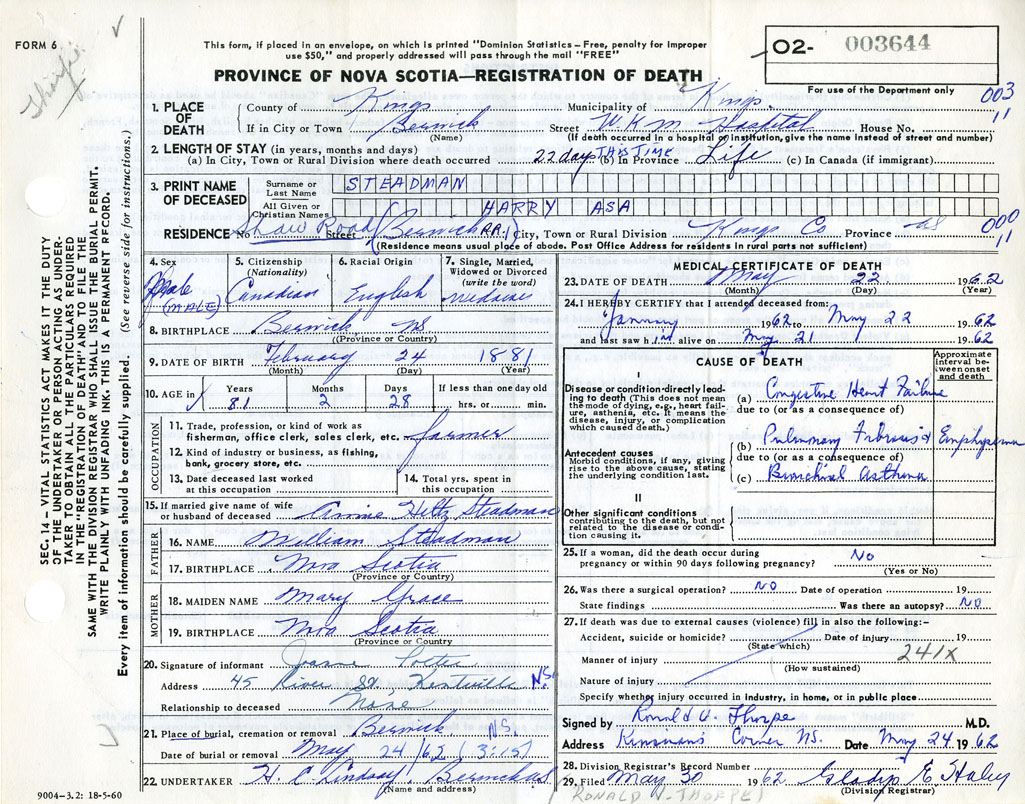 FORM 6
Thorpe
This form, if placed in an envelope, on which is printed "Dominion Statistics – Free, penalty for improper
use $50," and properly addressed will pass through the mail "FREE"
PROVINCE OF NOVA SCOTIA—REGISTRATION OF DEATH
O2- 003644
For use of the Department only
003
11
1. PLACE OF DEATH
County of Kings Municipality of Kings
If in City or Town Berwick Street W K M Hospital House No.
(Name) (If death occurred in a hospital or institution, give the name instead of street and number)
2. LENGTH OF STAY (in years, months and days)
(a) In City, Town or Rural Division where death occurred 22 day THIS TIME (b) In Province Life (c) In Canada (if immigrant)
3. PRINT NAME OF DECEASED
Surname or Last Name STEADMAN
All Given or Christian Names HARRY ASA
RESIDENCE No Shaw Road Street (Berwick R.R.) City, Town or Rural Division Kings Co Province NS
000
11
(Residence means usual place of abode. Post Office Address for residents in rural parts not sufficient)
4. Sex Male (MALE)
5. Citizenship (Nationality) Canadian
6. Racial Origin English
7. Single, Married, Widowed or Divorced (write the word)
8. BIRTHPLACE Berwick NS
(Province or Country)
9. DATE OF BIRTH February 24 1881
(Month) (Day) (Year)
10. AGE in Years 81 Months 2 Days 28 If less than one day old hrs. or min.
OCCUPATION
11. Trade, profession, or kind of work as
fisherman, office clerk, sales clerk, etc. farmer
12. Kind of industry or business, as fishing,
bank, grocery store, etc.
13. Date deceased last worked at this occupation
14. Total yrs. spent in this occupation
15. If married give name of wife
or husband of deceased Annie Hiltz Steadman
FATHER
16. NAME William Steadman
17. BIRTHPLACE Nova Scotia
(Province or Country)
MOTHER
18. MAIDEN NAME Mary Grace
19. BIRTHPLACE Nova Scotia
(Province or Country)
20. Signature of informant Porter
Address 45 River St, Kentville N.S.
Relationship to deceased None
21. Place of burial, cremation or removal Berwick NS.
Date of burial or removal May 24/62 (3:15)
22. UNDERTAKER H. C Lindsay, Berwick NS
(Name and address)
9004-3.2: 18-5-60
SEC. 14 – VITAL STATISTICS ACT MAKES IT THE DUTY
OF THE UNDERTAKER OR PERSON ACTING AS UNDER-
TAKER TO OBTAIN ALL THE PARTICULARS REQUIRED
IN THE "REGISTRATION OF DEATH" AND TO FILE THE
SAME WITH THE DIVISION REGISTRAR WHO SHALL ISSUE THE BURIAL PERMIT.
WRITE PLAINLY WITH UNFADING INK. THIS IS A PERMANENT RECORD.
Every item of information should be carefully supplied. (See reverse side for instructions.)
MEDICAL CERTIFICATE OF DEATH
23. DATE OF DEATH May 22 1962
(Month) (Day) (Year)
24. I HEREBY CERTIFY that I attended deceased from:
January 1962 to May 22 1962
and last saw him alive on May 21 1962
CAUSE OF DEATH
Approximate interval between onset and death
I
Disease or condition directly leading to death (This does not mean the mode of dying, e.g., heart failure, asthenia, etc. It means the disease, injury, or complication which caused death.)
(a) Congestive Heart Failure
due to (or as a consequence of)
Antecedent causes
Morbid conditions, if any, giving rise to the above cause, stating the underlying condition last.
(b) Pulmonary Fibrosis & Emphysema
due to (or as a consequence of)
(c) Bronchial Asthma
II
Other significant conditions
contributing to the death, but not related to the disease or condition causing it.
25. If a woman, did the death occur during
pregnancy or within 90 days following pregnancy? No
(Yes or No)
26. Was there a surgical operation? NO Date of operation 19
State findings Was there an autopsy? NO
27. If death was due to external causes (violence) fill in also the following:–
Accident, suicide or homicide? Date of injury 19
(State which)
241X
Manner of injury
(How sustained)
Nature of injury
Specify whether injury occurred in industry, in home, or in public place
Signed by Ronald V. Thorpe M.D.
Address Kinsman's Corner NS. Date May 24 1962
28. Division Registrar's Record Number
29. Filed May 30 1962 Gladys E Haley
(Division Registrar)
(RONALD V. THORPE)